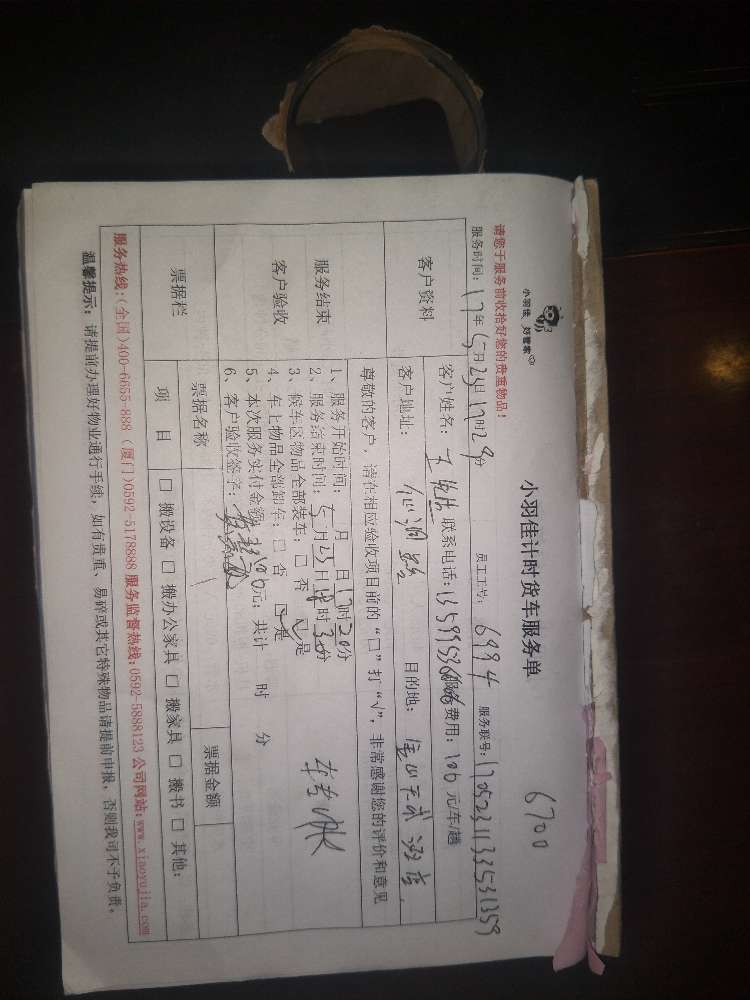 小羽佳 好管家
小羽佳计时货车服务单
6700
请您于服务前收拾好您的贵重物品！
服务时间：17年5月23日17时29分 员工工号：6994 服务联号：
客户资料
客户姓名： 联系电话： 服务费用：100元/车/趟
客户地址： 目的地：
尊敬的客户，请在相应验收项目前的“口”打“√”，非常感谢您的评价和意见
服务结束
客户验收
1、服务开始时间： 月 日17时20分
2、服务结束时间：5月23日18时30分
3、候车区物品全部装车：□ 否 ☑是
4、车上物品全部卸车：□ 否 ☑是
5、本次服务实付金额： 元；共计 时 分
6、客户验收签字：
票据栏
票据名称 票据金额
项 目 □ 搬设备 □ 搬办公家具 □ 搬家具 □ 搬书 □ 其他：
服务热线：(全国)400-6655-888 (厦门)0592-5178888 服务监督热线：0592-5888123 公司网站：www.xiaoyujia.com
温馨提示：请提前办理好物业通行手续，如有贵重、易碎或其它特殊物品请提前申报，否则我司不予负责。